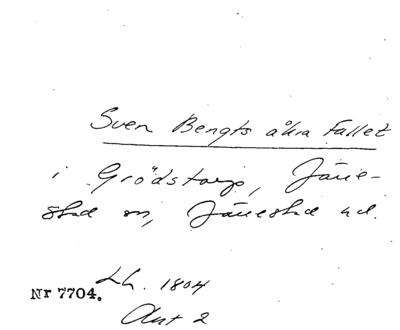 Sven Bengts åkra Fallet
i Grödstorp, Järre-
stad sn, Järrestad hd.
Lh. 1804
Nr 7704.
Akt 2